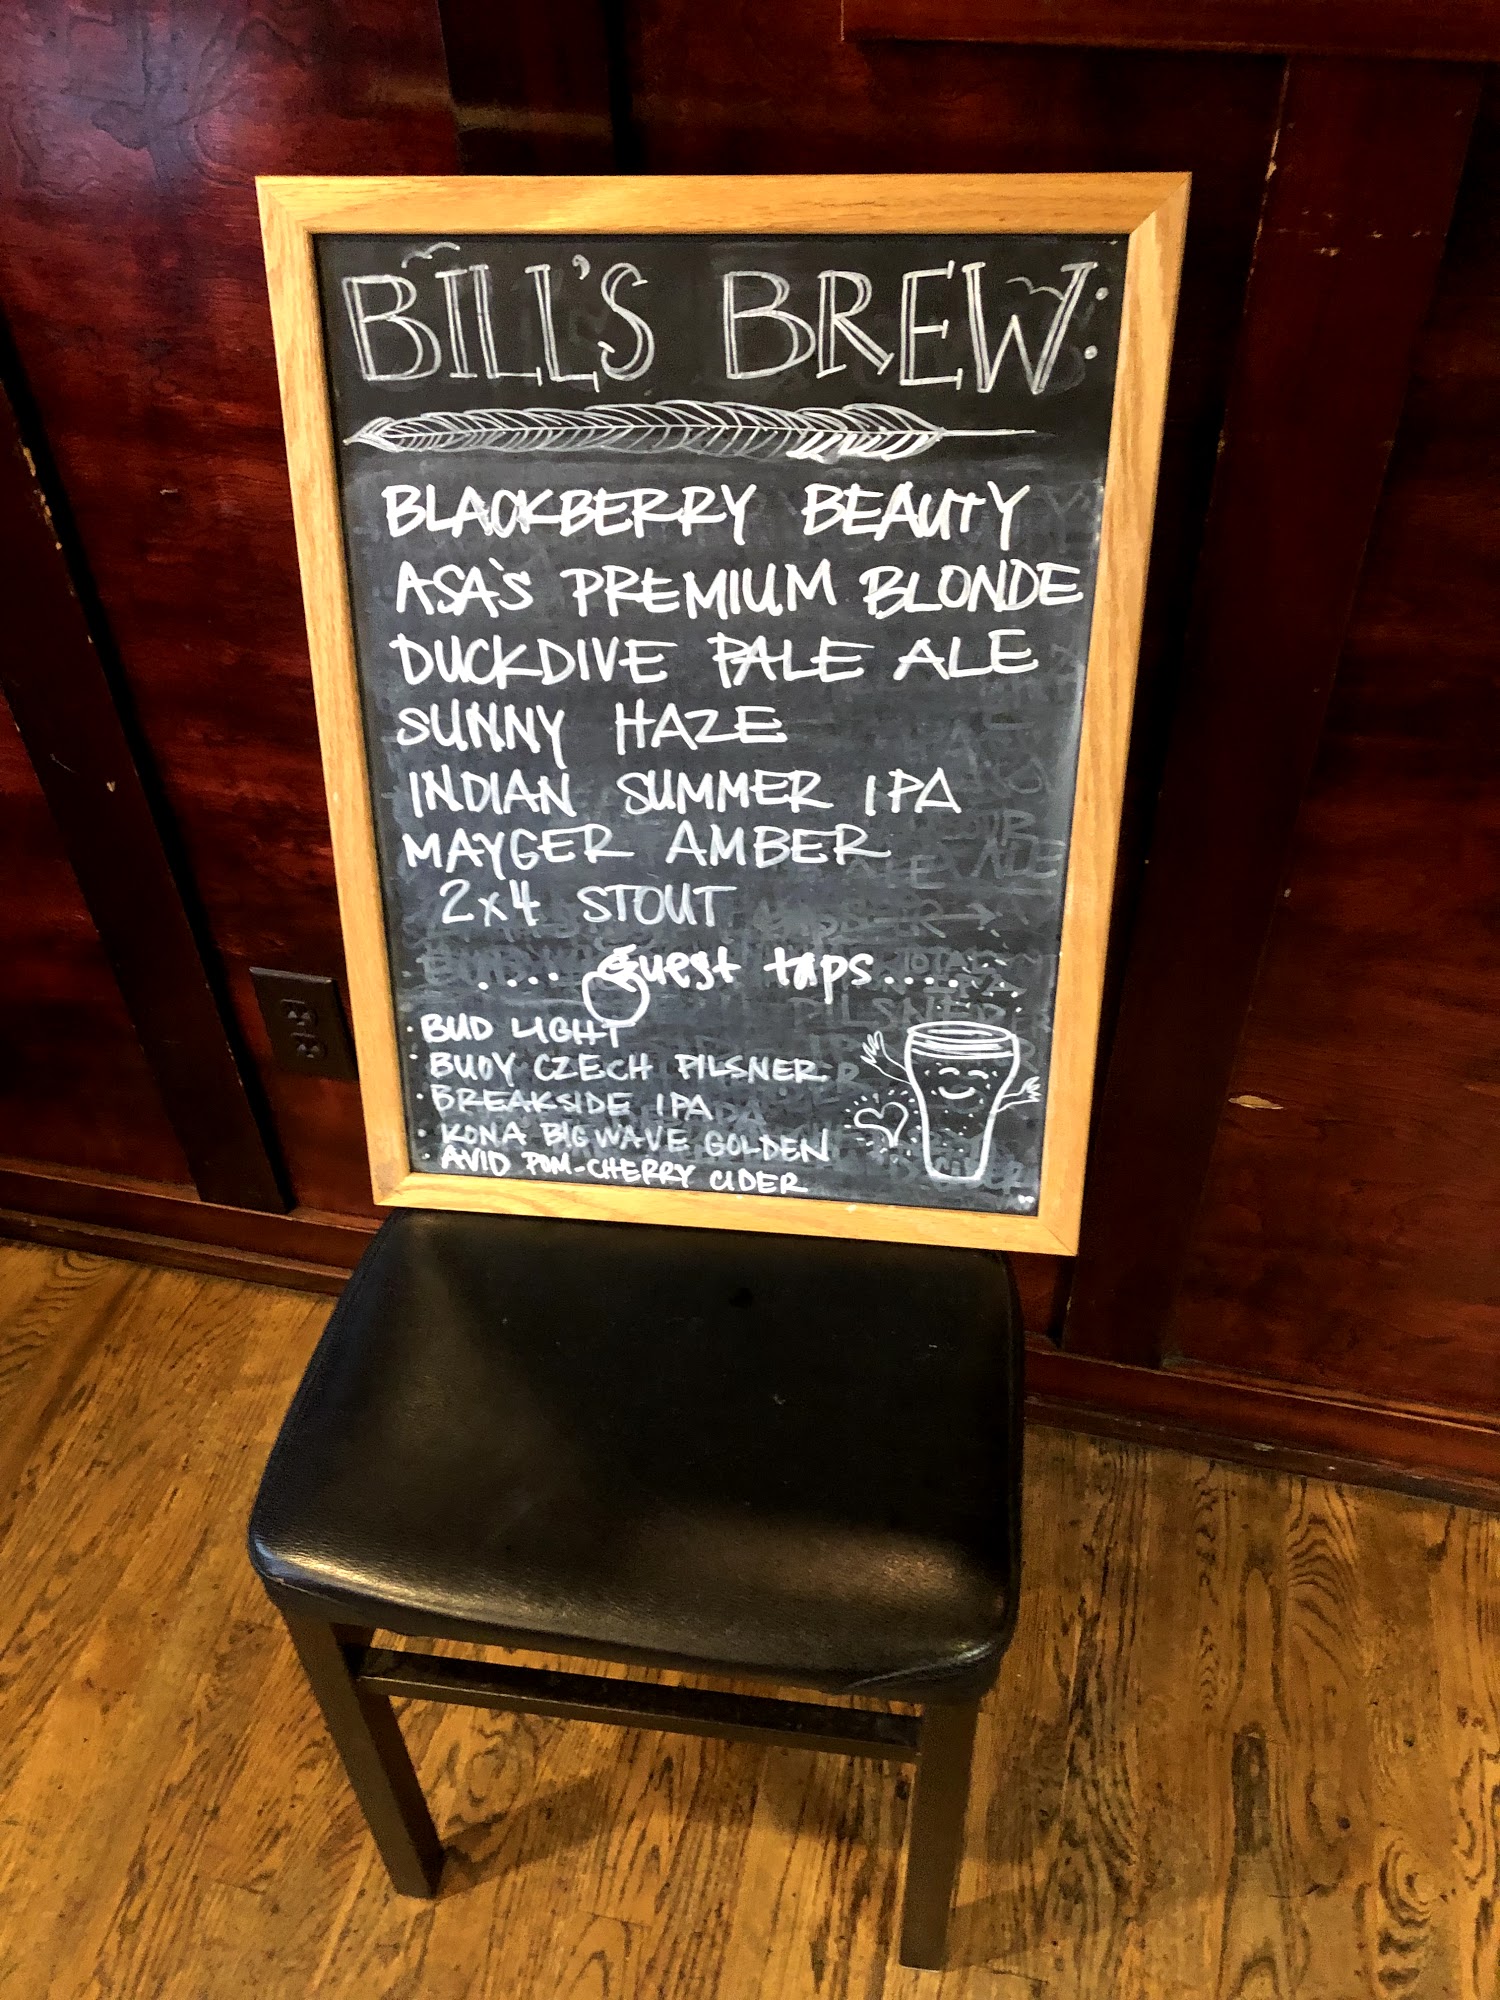 BILL'S BREW:
BLACKBERRY BEAUTY
ASA'S PREMIUM BLONDE
DUCKDIVE PALE ALE
SUNNY HAZE
INDIAN SUMMER IPA
MAYGER AMBER
2x4 STOUT
.... Guest taps......
· BUD LIGHT
· BUOY CZECH PILSNER
· BREAKSIDE IPA
· KONA BIG WAVE GOLDEN
· AVID POM-CHERRY CIDER